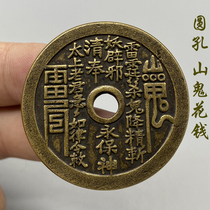 圆孔山鬼花钱
雷霆
殺鬼降精斬
妖辟邪永保神
清奉
太上老君急急如律令敕